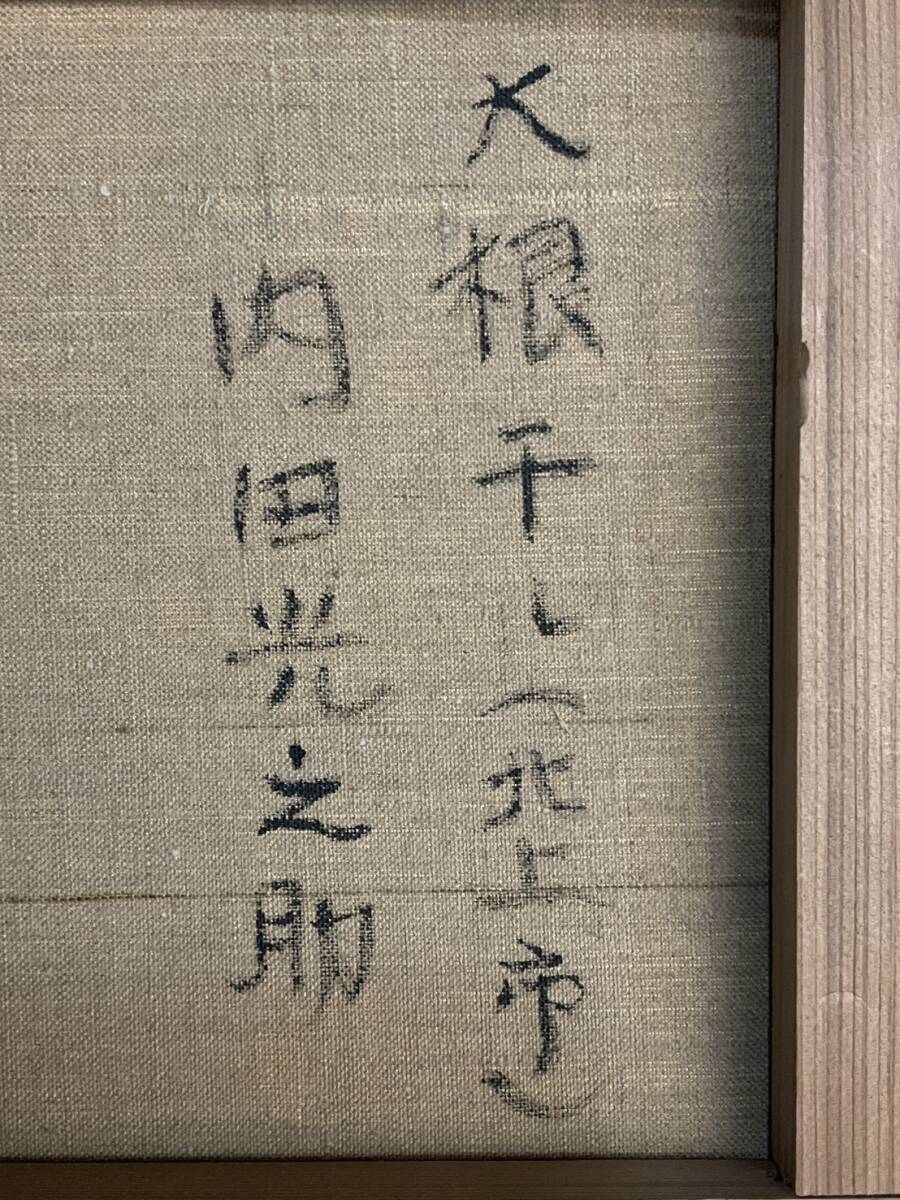 大根干し(北上市)
内田光之助